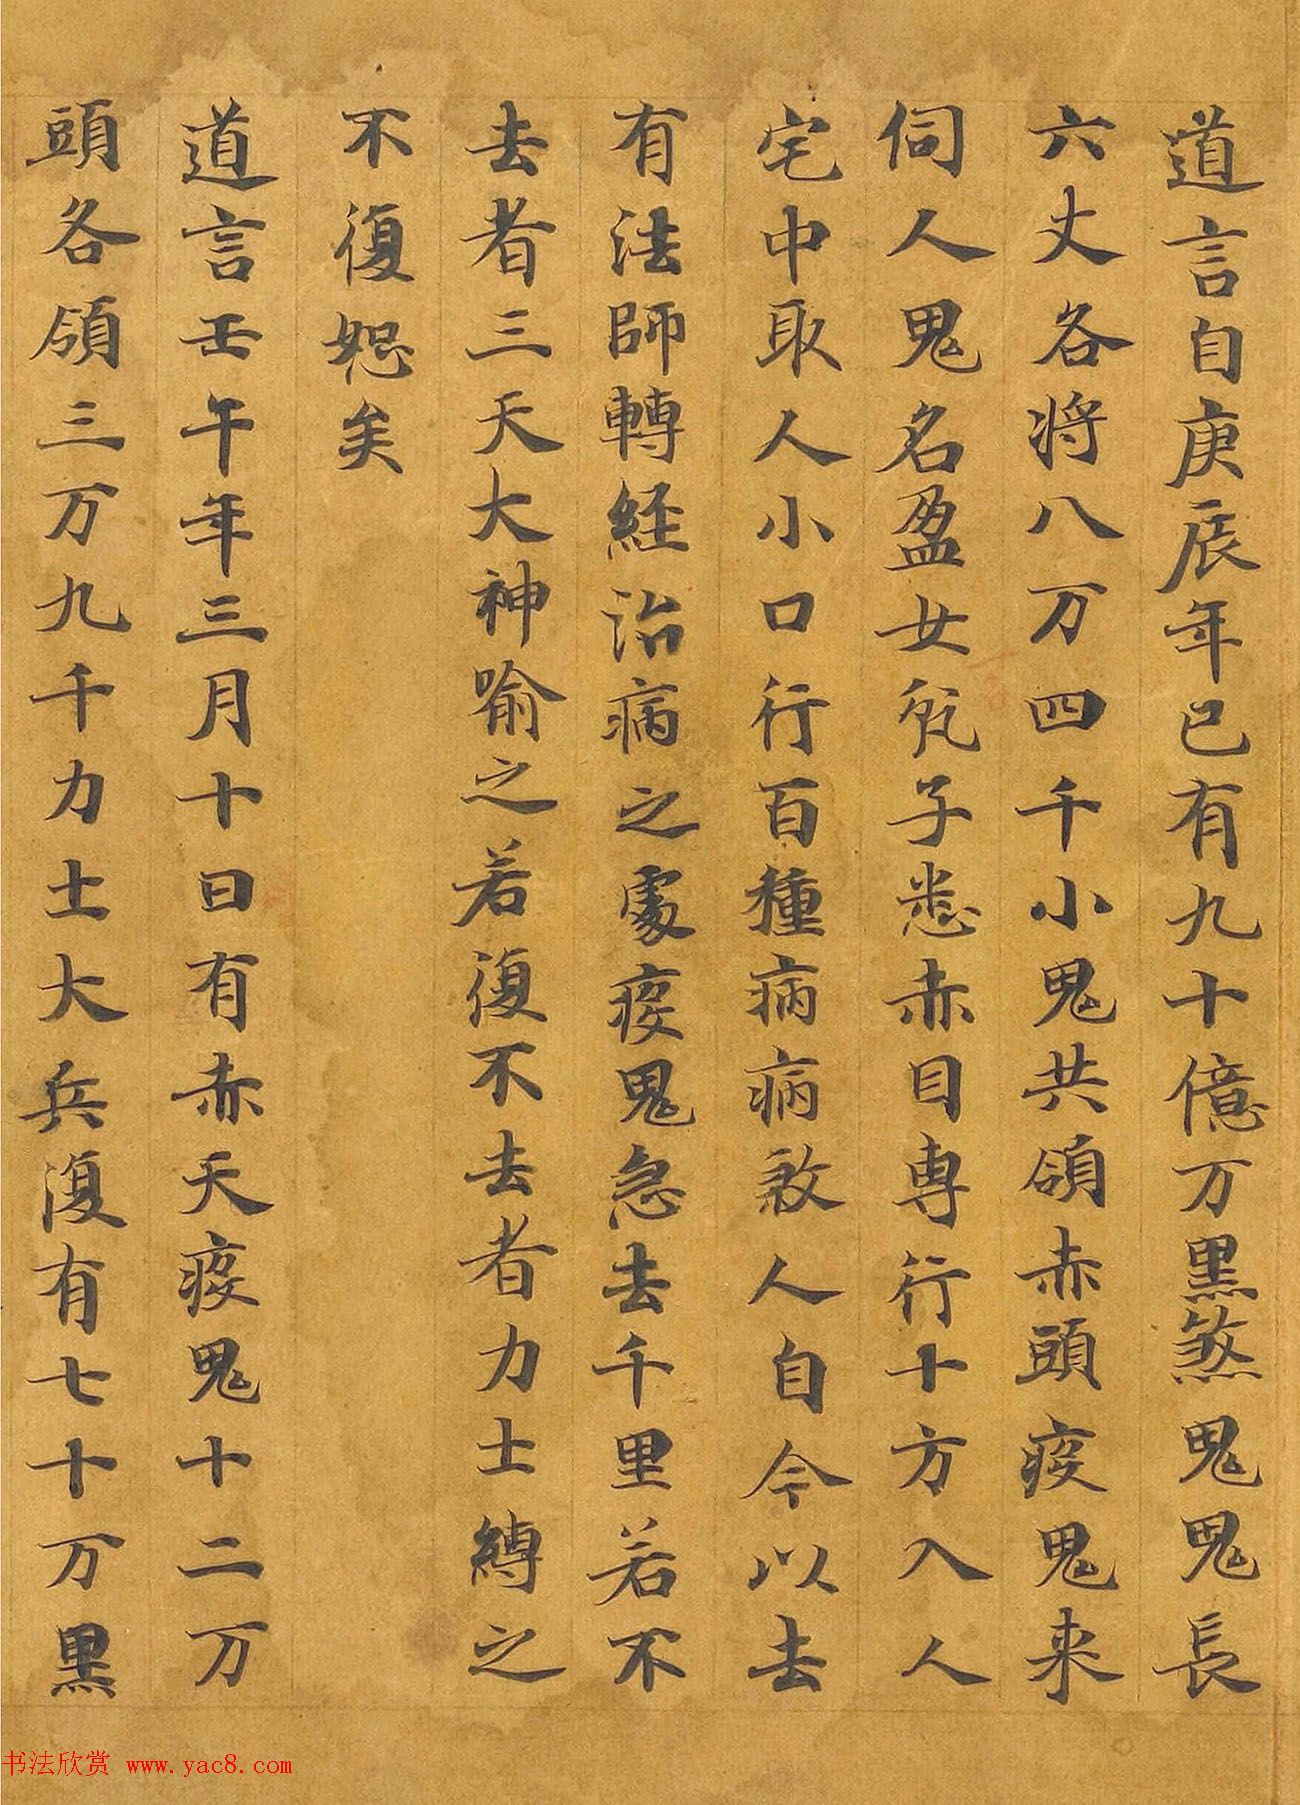 道言自庚辰年已有九十億万黒煞鬼鬼長
六丈各将八万四千小鬼共領赤頭疫鬼来
伺人鬼名盈女子悉赤目専行十方入人
宅中取人小口行百種病病煞人自今以去
有法師轉経治病之處疫鬼急去千里若不
去者三天大神喻之若復不去者力士縛之
不復恕矣
道言壬午年三月十日有赤天疫鬼十二万
頭各領三万九千力士大兵復有七十万黒
书法欣赏 www.yac8.com